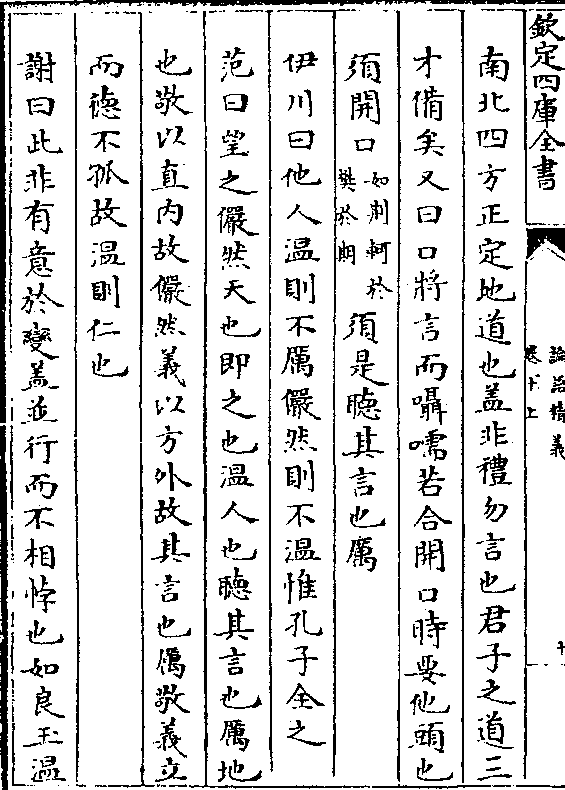 欽定四庫全書
論語精義
卷十上
南北四方正定地道也盖非禮勿言也君子之道三
才備矣又曰口將言而囁嚅若合開口時要他頭也
須開口如荆軻於樊於期須是聽其言也厲
伊川曰他人温則不厲儼然則不温惟孔子全之
范曰望之儼然天也即之也温人也聽其言也厲地
也敬以直内故儼然義以方外故其言也厲敬義立
而德不孤故温則仁也
謝曰此非有意於變盖並行而不相悖也如良玉温